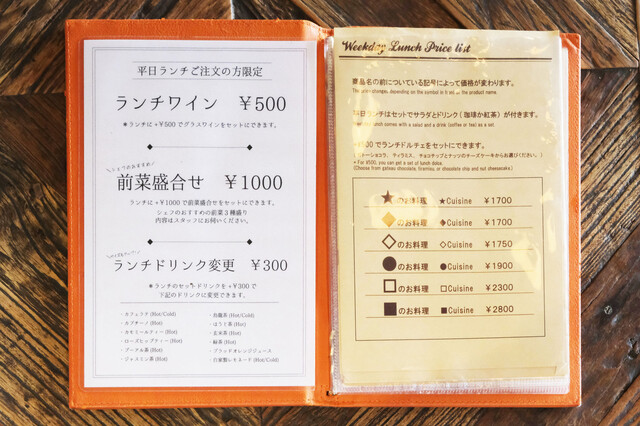 平日ランチご注文の方限定
ランチワイン ¥500
＊ランチに+¥500でグラスワインをセットにできます。
シェフのおすすめ
前菜盛合せ ¥1000
ランチに+¥1000で前菜盛合せをセットにできます。
シェフのおすすめの前菜3種盛り
内容はスタッフにお伺いください。
ランチドリンク変更 ¥300
＊ランチのセットドリンクを+¥300で
下記のドリンクに変更できます。
・カフェラテ(Hot/Cold)
・カプチーノ(Hot)
・カモミールティー(Hot)
・ローズヒップティー(Hot)
・プーアル茶(Hot)
・ジャスミン茶(Hot)
・烏龍茶(Hot/Cold)
・ほうじ茶(Hot)
・玄米茶(Hot)
・緑茶(Hot)
・ブラッドオレンジジュース
・自家製レモネード(Hot/Cold)
Weekday Lunch Price list
商品名の前についている記号によって価格が変わります。
The price changes, depending on the symbol in front of the product name.
平日ランチはセットでサラダとドリンク（珈琲か紅茶）が付きます。
lunch comes with a salad and a drink (coffee or tea) as a set.
500でランチドルチェをセットにできます。
ショコラ、ティラミス、チョコチップとナッツのチーズケーキからお選びください。）
For ¥500, you can get a set of lunch dolce.
(Choose from gateau chocolate, tiramisu, or chocolate chip and nut cheesecake.)
★のお料理 ★Cuisine ¥1700
◆のお料理 ◆Cuisine ¥1700
◇のお料理 ◇Cuisine ¥1750
●のお料理 ●Cuisine ¥1900
□のお料理 □Cuisine ¥2300
■のお料理 ■Cuisine ¥2800